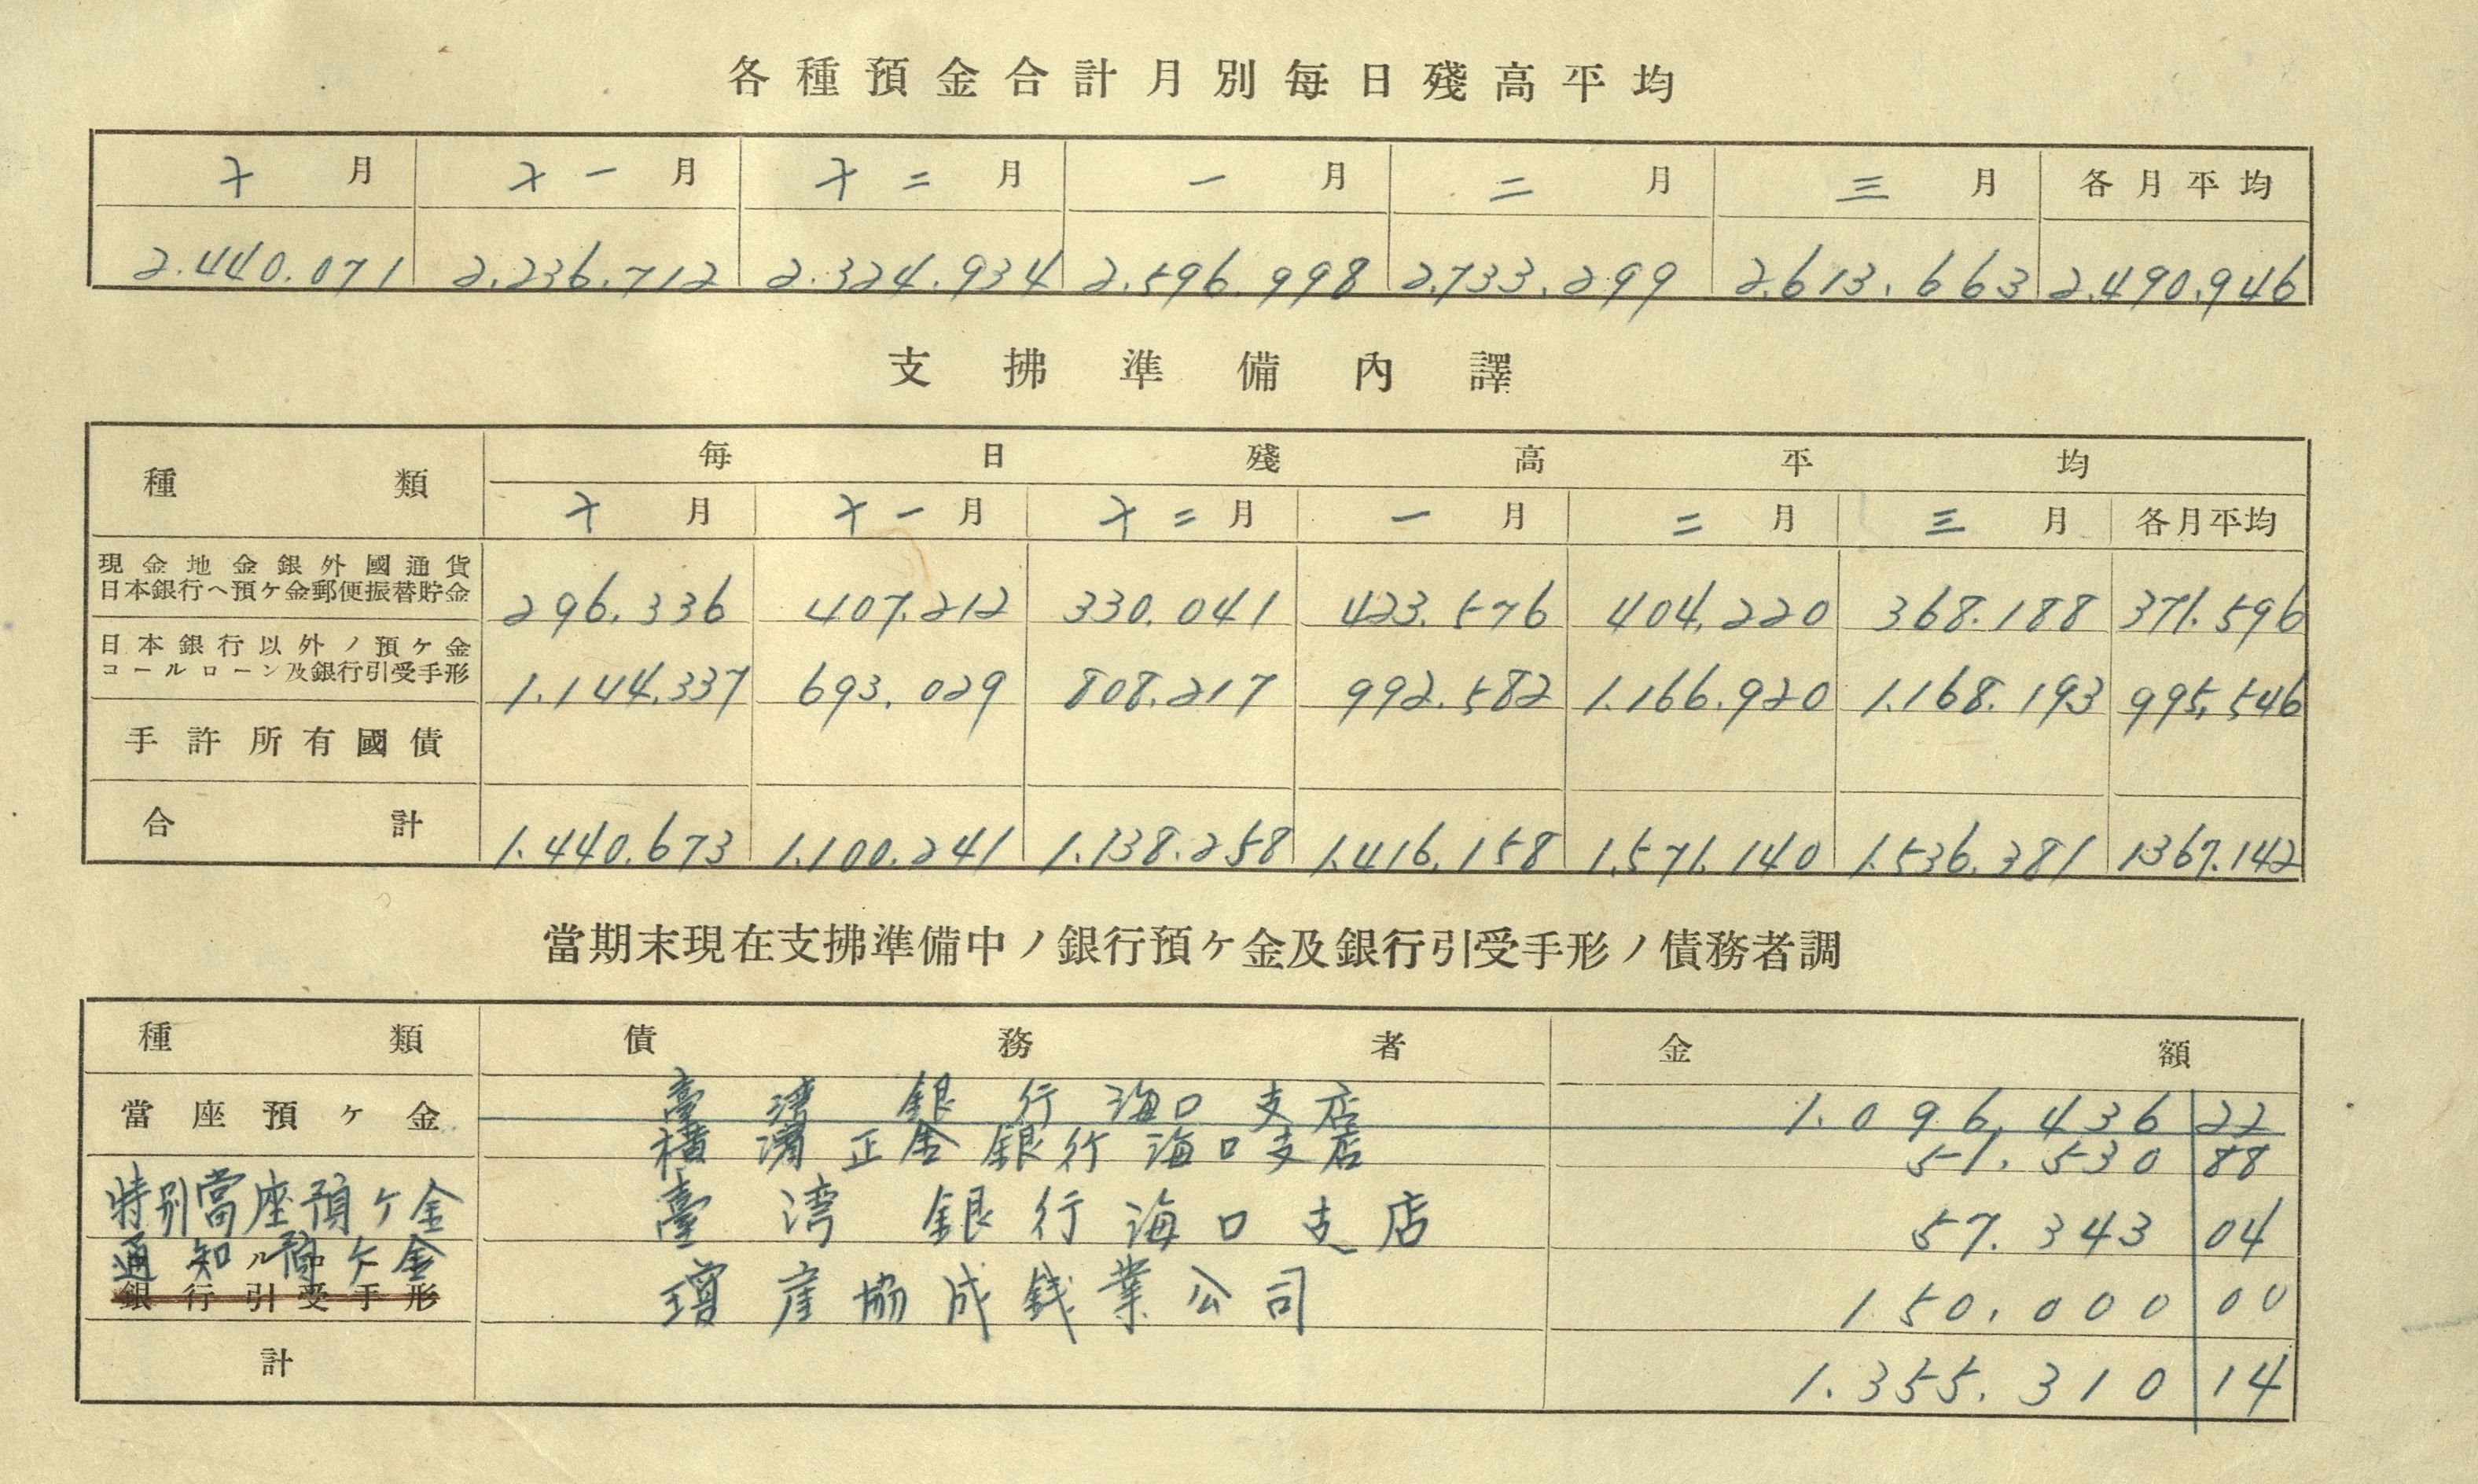 各種預金合計月別每日殘高平均
十月 十一月 十二月 一月 二月 三月 各月平均
2.440.071 2.236.712 2.324.934 2.596.998 2.733.299 2.613.663 2.490.946
支拂準備內譯
種類 每日殘高平均
十月 十一月 十二月 一月 二月 三月 各月平均
現金地金銀外國通貨
日本銀行へ預ケ金郵便振替貯金 296.336 407.212 330.041 423.576 404.220 368.188 371.596
日本銀行以外ノ預ケ金
コールローン及銀行引受手形 1.144.337 693.029 808.217 992.582 1.166.920 1.168.193 995.546
手許所有國債
合計 1.440.673 1.100.241 1.138.258 1.416.158 1.571.140 1.536.381 1.367.142
當期末現在支拂準備中ノ銀行預ケ金及銀行引受手形ノ債務者調
種類 債務者 金額
當座預ケ金 臺湾銀行海口支店 1.096.436 22
橫濱正金銀行海口支店 51.530 88
特別當座預ケ金 臺湾銀行海口支店 57.343 04
通知預ケ金
銀行引受手形 産協成銭業公司 150.000 00
計 1.355.310 14